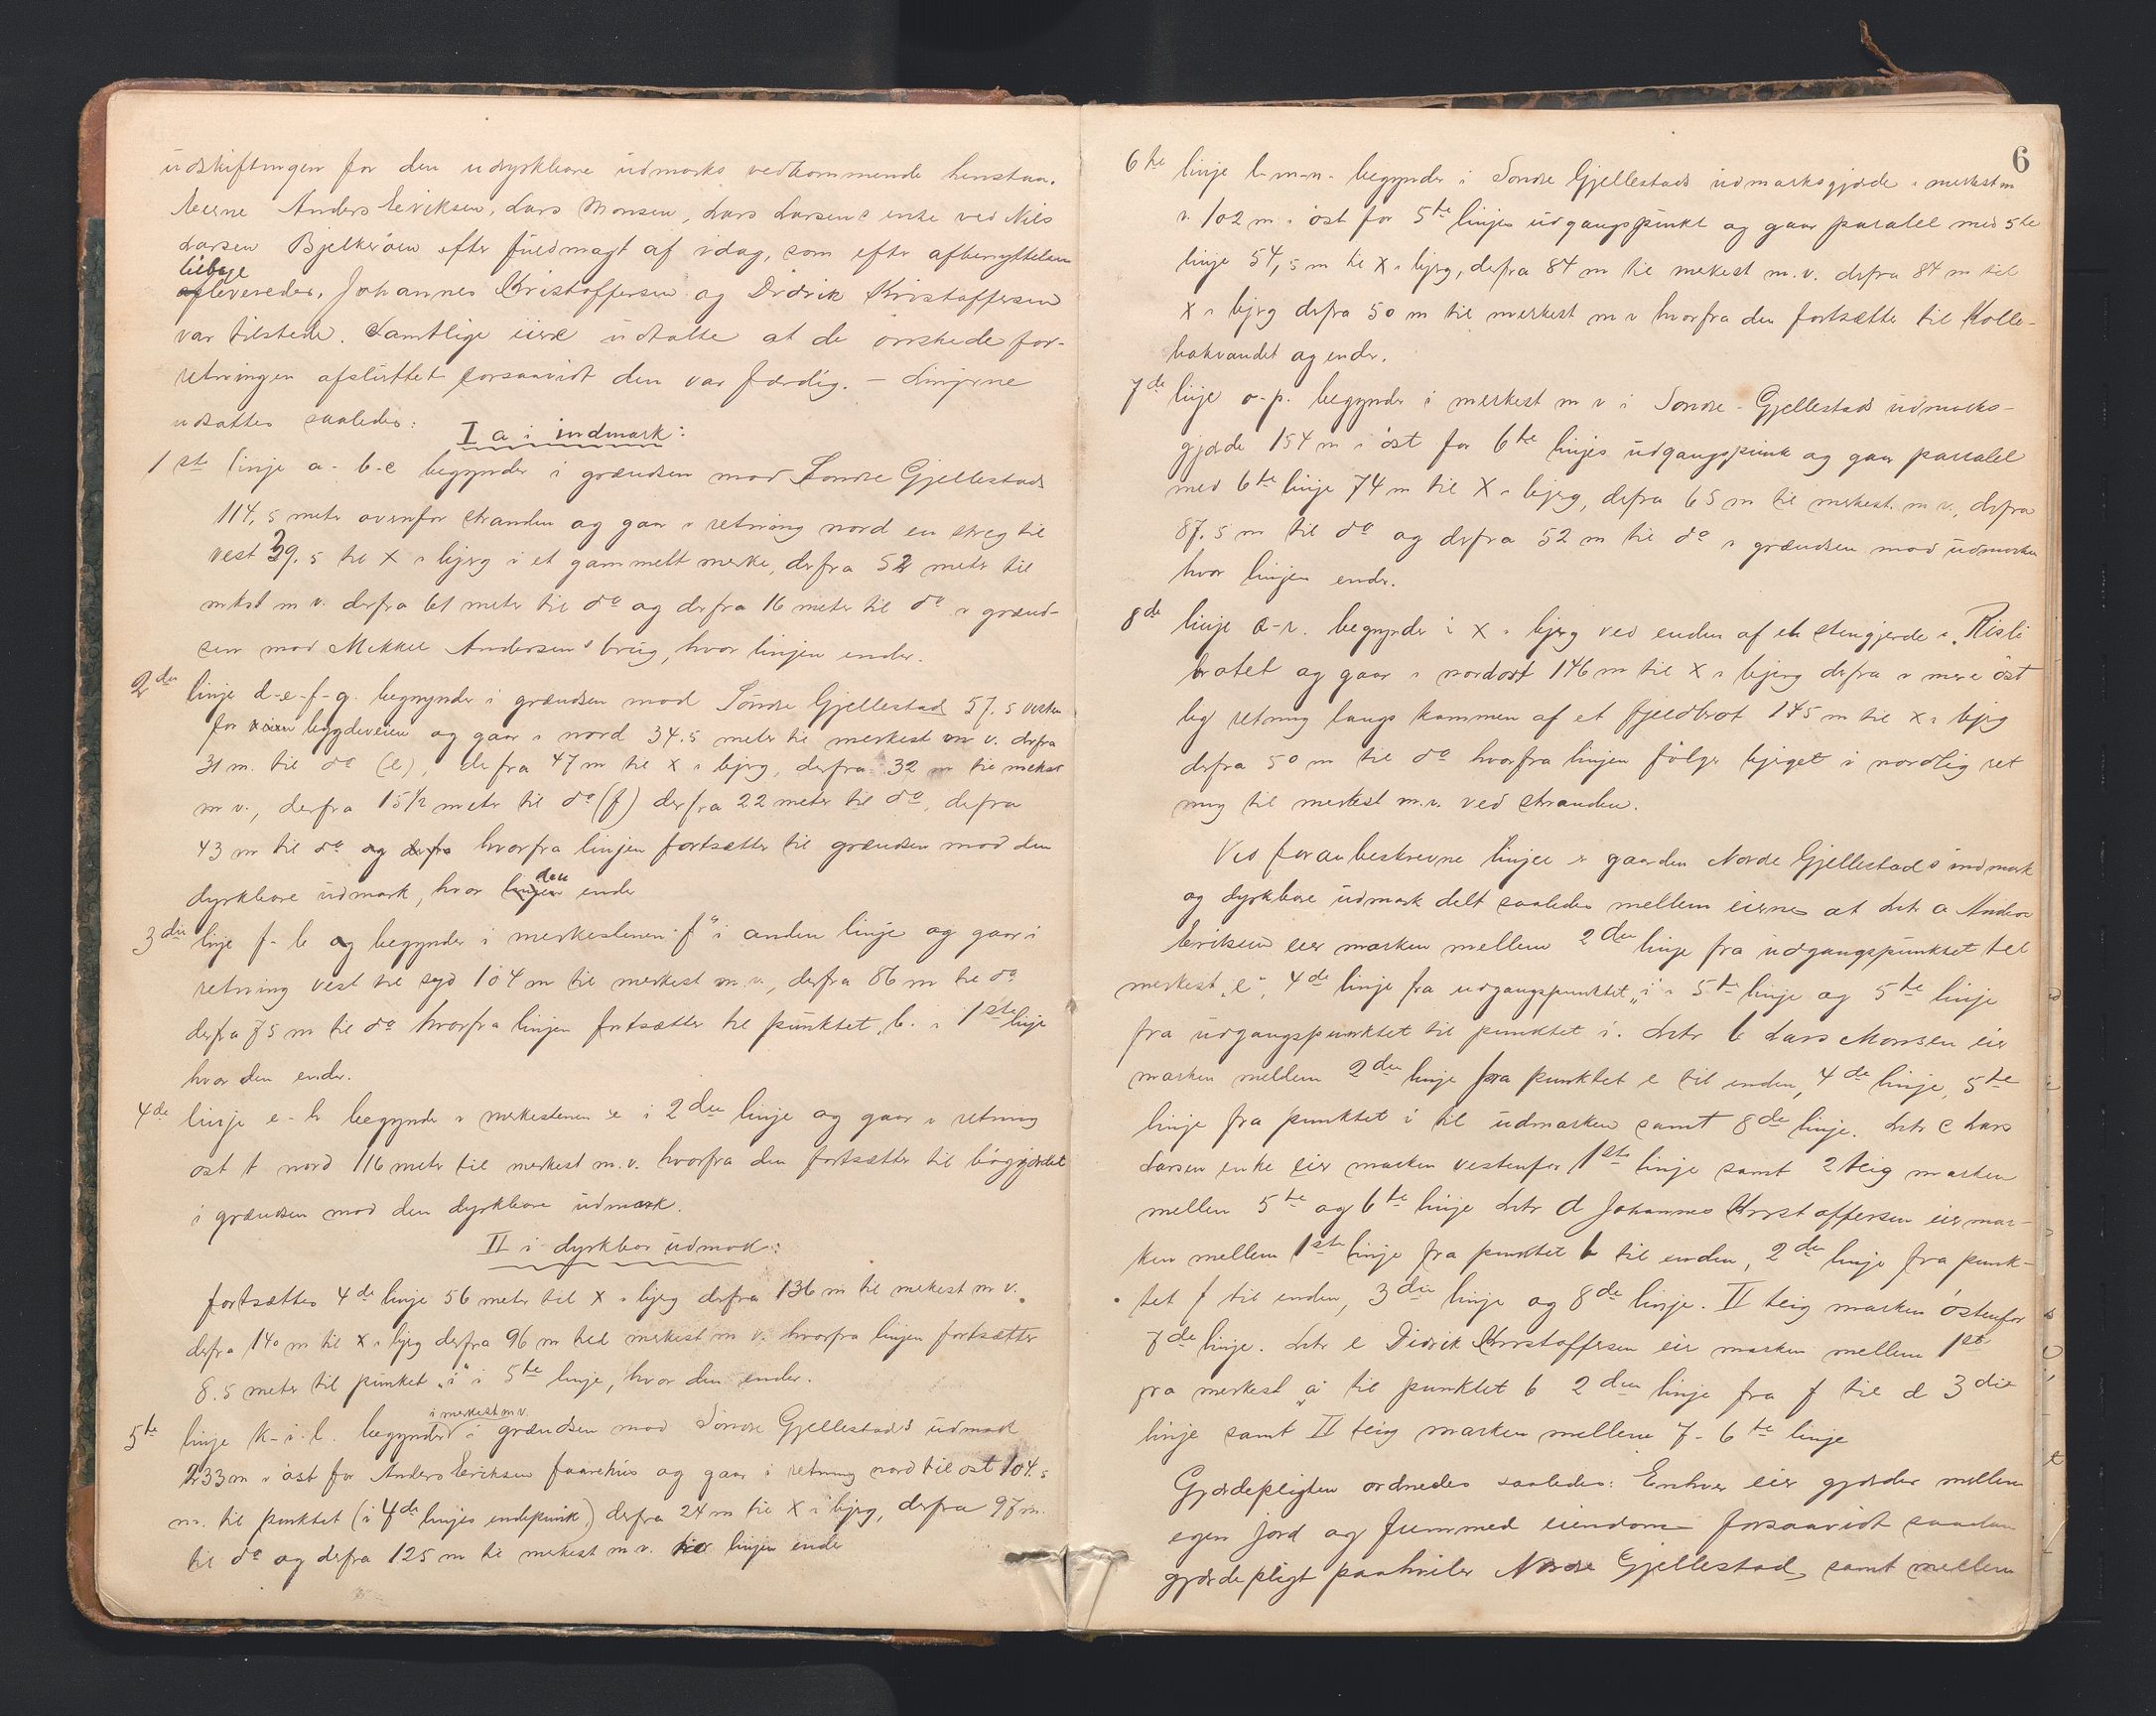 udskiftningen for den udyrkbare udmarks vedkommende henstaa.
Eierne Anders Eriksen, Lars Monsen, Lars Larsens enke ved Nils
Larsen Bjelkerøen efter fuldmagt af idag, som efter afbenyttelsen
tilbage
afleveredes, Johannes Kristoffersen og Didrik Kristoffersen
var tilstede. Samtlige eiere udtalte at de ønskede for-
retningen afsluttet forsaavidt den var færdig. – Linjerne
udsattes saaledes:
I a i indmark:
1ste linje a-b-c begynder i grændsen mod Søndre Gjellestad
114,5 meter ovenfor stranden og gaar i retning nord en streg til
vest 39.5 til X i bjerg i et gammelt merke, derfra 52 meter til
mkst m v. derfra 61 meter til do og derfra 16 meter til do i grænd-
sen mod Mikkel Andersens brug, hvor linjen ender.
2den linje d-e-f-g. begynder i grændsen mod Søndre Gjellestad 57.5 vesten
for bygdeveien og gaar i nord 34.5 meter til merkest m v. derfra
31 m. til do (e), derfra 47 m til X i bjerg, derfra 32 m til mekst
m v., derfra 15½ meter til do (f) derfra 22 meter til do, derfra
43 m til do og derfra hvorfra linjen fortsætter til grændsen mod den
dyrkbare udmark, hvor linjen den ender
3die linje f-b og begynder i merkestenen "f" i anden linje og gaar i
retning vest til syd 104 m til merkest m. v., derfra 86 m til do
derfra 75 m til do hvorfra linjen fortsætter til punktet "b. i 1ste linje
hvor den ender.
4de linje e-h begynder i merkestenen e i 2den linje og gaar i retning
ost t nord 116 meter til merkest m.v. hvorfra den fortsætter til bøgjærdet
i grændsen mod den dyrkbare udmark.
II i dyrkbar udmark:
fortsættes 4de linje 56 meter til X i bjerg derfra 136 m til mekest m v.
derfra 140 m til X i bjerg derfra 96 m til merkest m v. hvorfra linjen fortsætter
8.5 meter til punktet "i" i 5te linje, hvor den ender.
i merkest m v.
5te linje k-i-l. begynder i grændsen mod Søndre Gjellestads udmark
233 m i øst for Anders Eriksens faarehus og gaar i retning nord til ost 104.5
m. til punktet (i 4de linjes endepunk) derfra 24 m til X i bjerg, derfra 97 m.
til do og derfra 125 m til mekest m v. hvor linjen ender
6
6te linje l-m-n- begynder i Søndre Gjellestads udmarksgjærde i merkest m
v. 102 m i øst for 5te linjes udgangspunkt og gaar paralel med 5te
linje 54,5 m til X i bjerg, derfra 84 m til mekest m.v. derfra 84 m til
X i bjerg derfra 50 m til merkest m v hvorfra den fortsætter til Kolle-
bakvandet og ender.
7de linje o-p. begynder i merkest m v i Søndre-Gjellestads udmarks-
gjærde 154 m i øst for 6te linjes udgangspunk og gaar parralel
med 6te linje 74 m til X i bjerg, derfra 65 m til merkest. m v., derfra
87.5 m til do og derfra 52 m til do i grændsen mod udmarken
hvor linjen ender.
8de linje q-r. begynder i X i bjerg ved enden af et stengjerde i "Risli
brotet og gaar i nordost 146 m til X i bjerg derfra i mere øst
lig retning langs kammen af et fjeldbrot 145 m til X i bjerg
derfra 50 m til do hvorfra linjen følger bjerget i nordlig ret
ning til merkest m.v. ved stranden.
Ved foranbeskrevne linjer er gaarden Nordre Gjellestads indmark
og dyrkbare udmark delt saaledes mellem eierne at Litr a Anders
Eriksen eier marken mellem 2den linje fra udgangspunktet til
merkest "e", 4de linje fra udgangspunktet "i" i 5te linje og 5te linje
fra udgangspunktet til punktet i. Litr b Lars Monsen eier
marken mellem 2den linje fra punktet e til enden, 4de linje, 5te
linje fra punktet i til udmarken samt 8de linje. Litr c Lars
Larsen enke eier marken vestenfor 1ste linje samt 2 teig marken
mellem 5te og 6te linje Litr d Johannes Kristoffersen eier mar-
ken mellem 1ste linje fra punktet b til enden, 2den linje fra punk-
tet f til enden, 3die linje og 8de linje. II teig marken østenfor
7de linje. Litr e Didrik Kristoffersen eier marken mellem 1ste
fra merkest "a" til punktet b 2den linje fra f til d 3die
linje samt II teig marken mellem 7-6te linje
Gjærdepligten ordnedes saaledes: Enhver eier gjærder mellem
egen jord og fremmed eiendom forsaavidt saadan
gjærdepligt paahviler Nordre Gjellestad, samt mellem